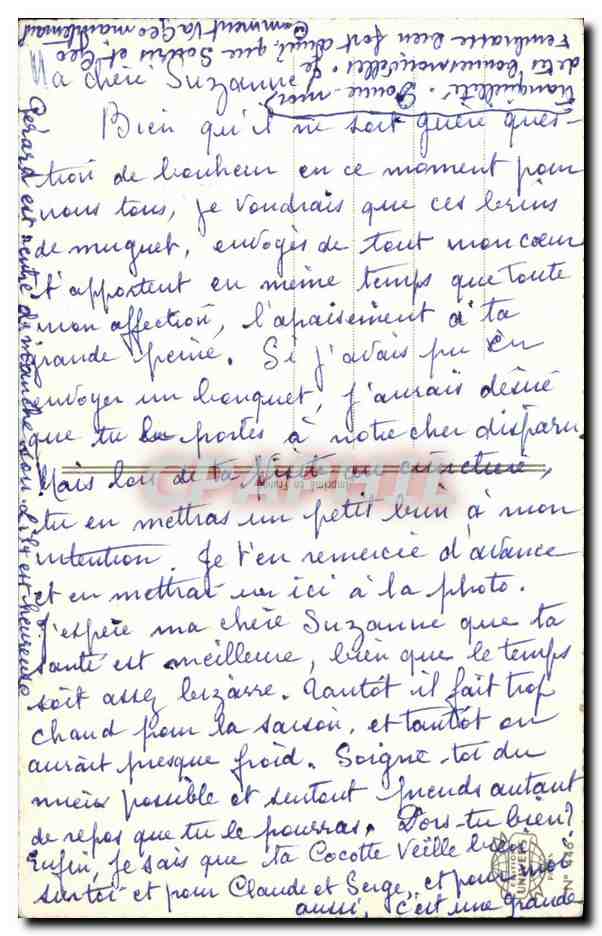 Ma chère Suzanne
Bien qu'il ne soit guère ques-
tion de bonheur en ce moment pour
nous tous, je voudrais que ces brins
de muguet, envoyés de tout mon coeur
t'apportent en même temps que toute
mon affection, l'apaisement à ta
grande peine. Si j'avais pu en
envoyer un bouquet, j'aurais désiré
que tu le portes à notre cher disparu
Mais lors de ta visite au cimetière,
tu en mettras un petit brin à mon
intention. Je t'en remercie d'avance
et en mettrai un ici à la photo.
J'espère ma chère Suzanne que ta
santé est meilleure, bien que le temps
soit assez bizarre. Tantôt il fait trop
chaud pour la saison, et tantôt on
aurait presque froid. Soigne-toi du
mieux possible et surtout prends autant
de repos que tu le pourras. Dors-tu bien?
Enfin, je sais que ta Cocotte veille bien
sur toi et pour Claude et Serge, et pour moi
aussi, c'est une grande
tranquillité. Donne-moi
de tes bonnes nouvelles. Je
t'embrasse bien fort ainsi que
Comment va Géo maintenant
Gérard est rentré dimanche soir
est heureuse
CPAPHIL
Imprimé en France
EDITION
UNIVER
N° 946